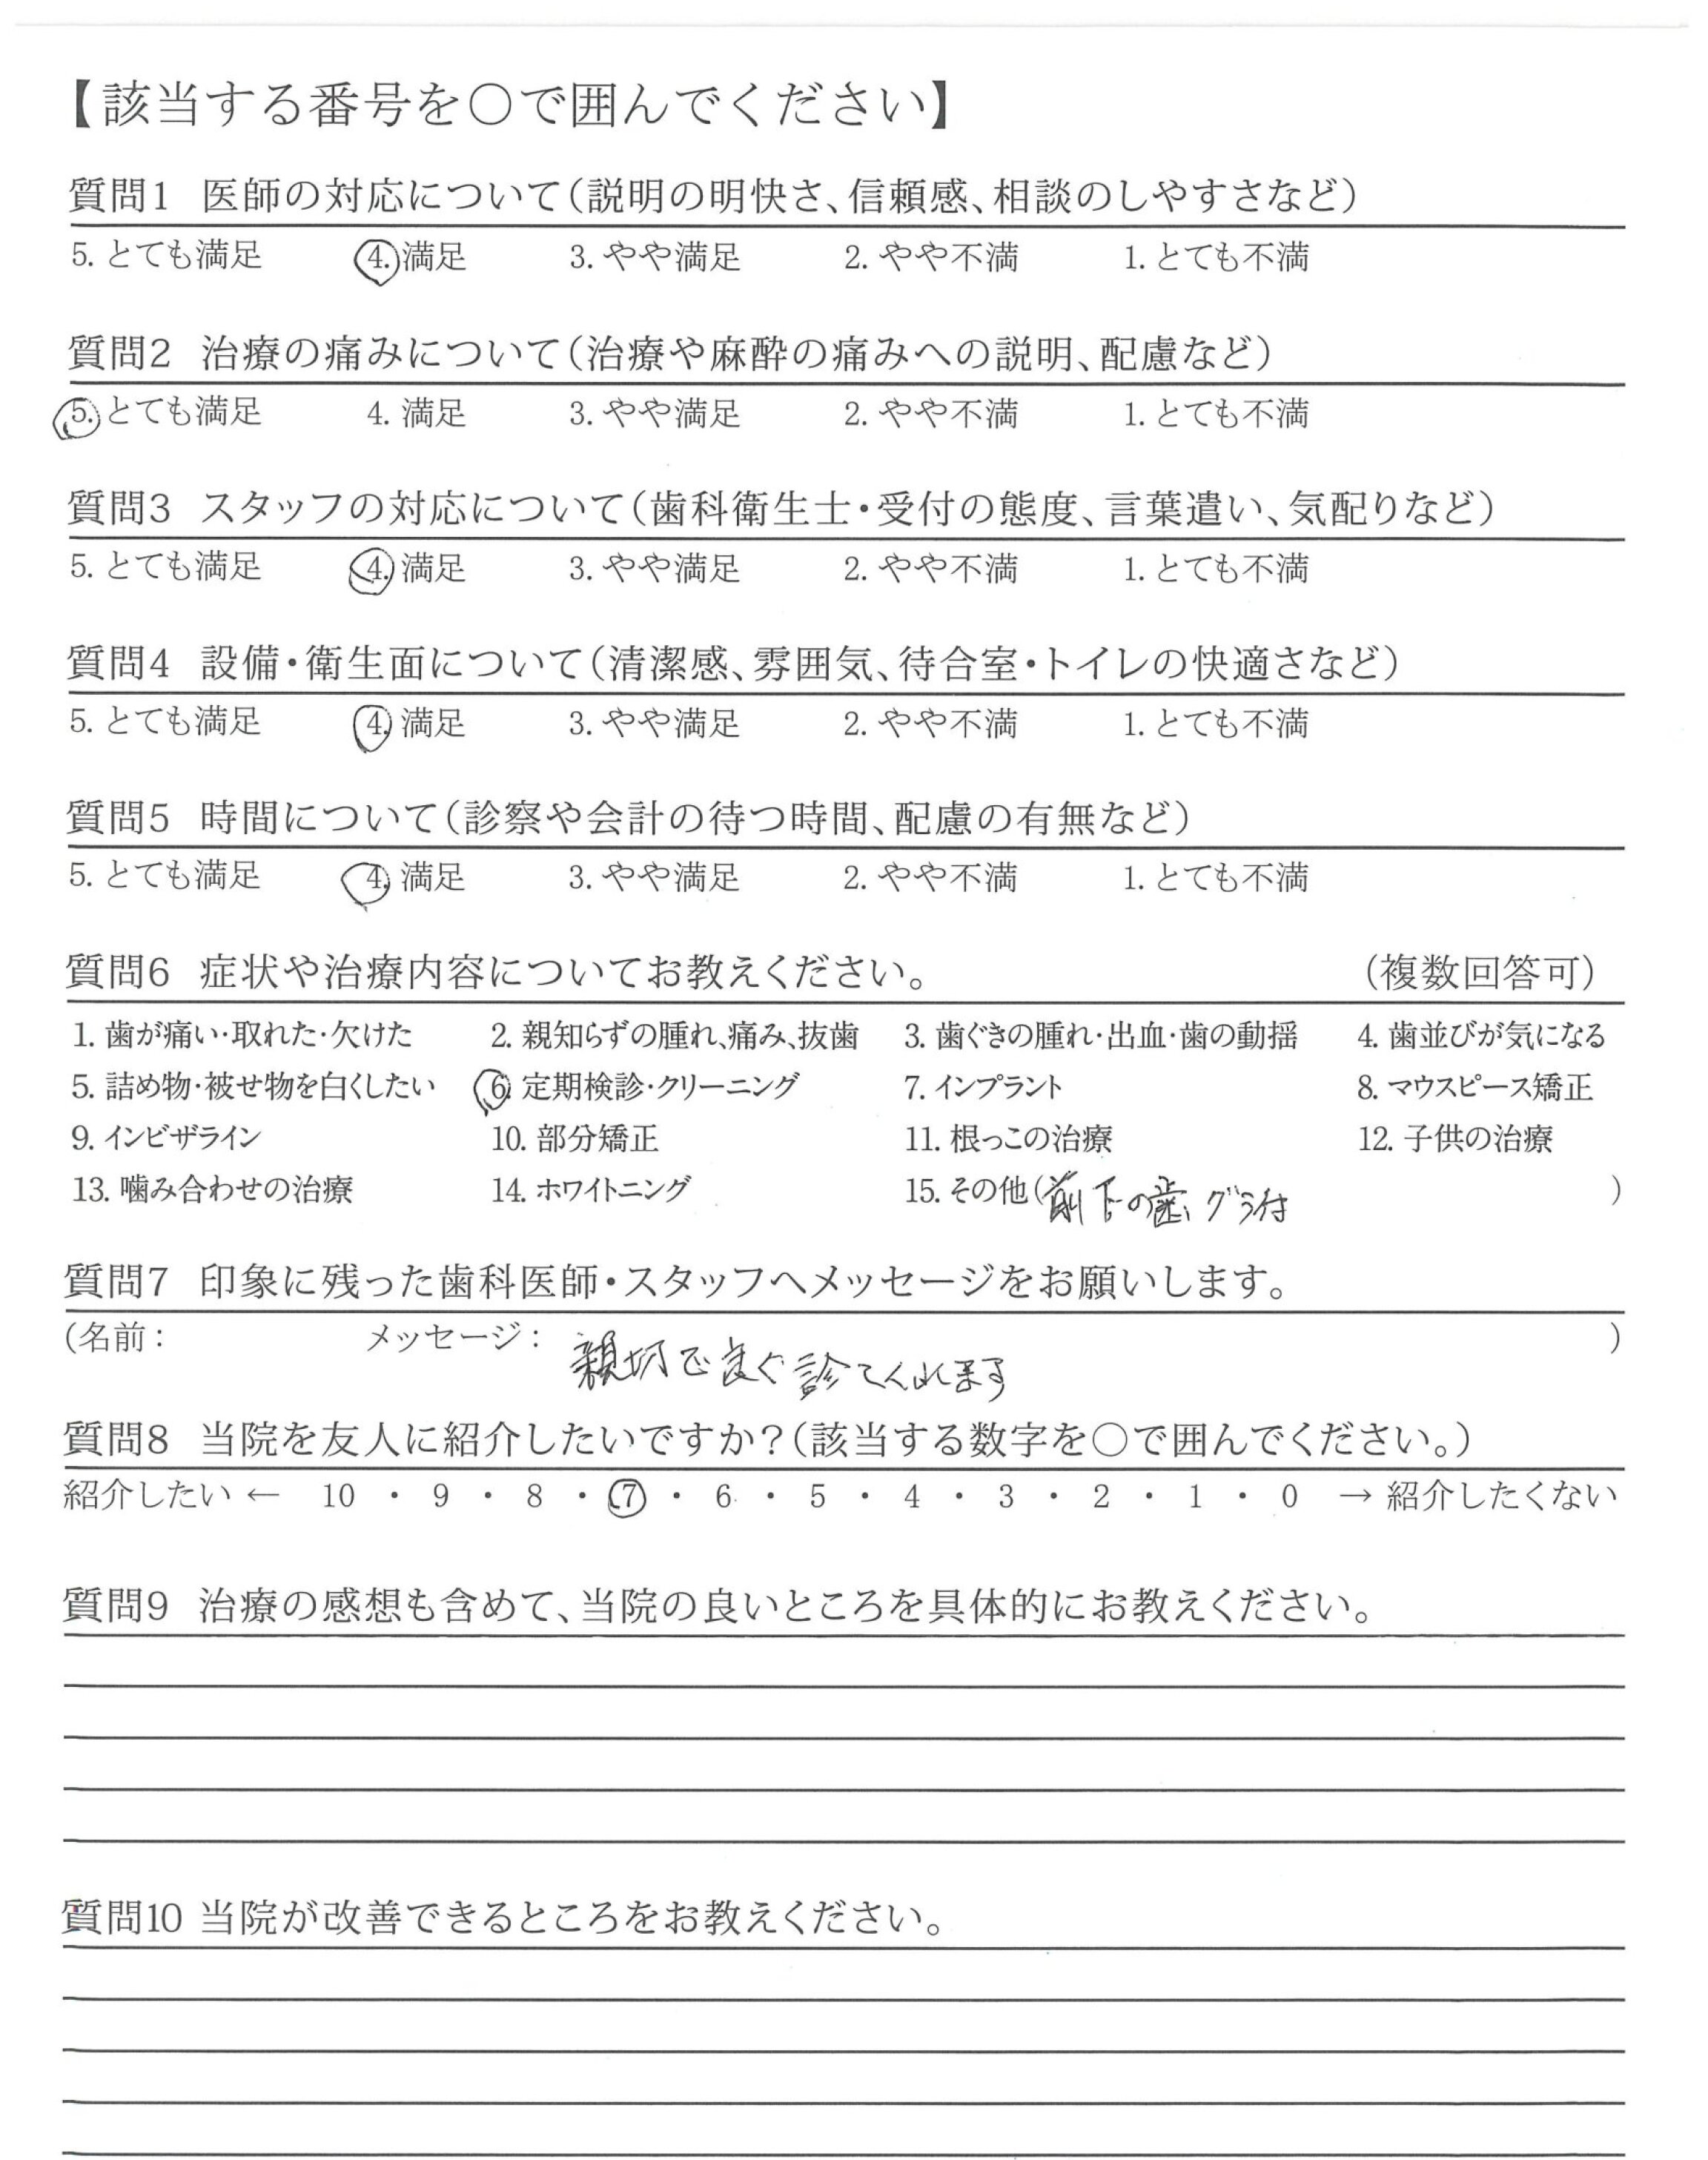 【該当する番号を〇で囲んでください】
質問1 医師の対応について(説明の明快さ、信頼感、相談のしやすさなど)
5. とても満足 4. 満足 3. やや満足 2. やや不満 1. とても不満
質問2 治療の痛みについて(治療や麻酔の痛みへの説明、配慮など)
5. とても満足 4. 満足 3. やや満足 2. やや不満 1. とても不満
質問3 スタッフの対応について(歯科衛生士・受付の態度、言葉遣い、気配りなど)
5. とても満足 4. 満足 3. やや満足 2. やや不満 1. とても不満
質問4 設備・衛生面について(清潔感、雰囲気、待合室・トイレの快適さなど)
5. とても満足 4. 満足 3. やや満足 2. やや不満 1. とても不満
質問5 時間について(診察や会計の待つ時間、配慮の有無など)
5. とても満足 4. 満足 3. やや満足 2. やや不満 1. とても不満
質問6 症状や治療内容についてお教えください。 (複数回答可)
1. 歯が痛い・取れた・欠けた 2. 親知らずの腫れ、痛み、抜歯 3. 歯ぐきの腫れ・出血・歯の動揺 4. 歯並びが気になる
5. 詰め物・被せ物を白くしたい 6. 定期検診・クリーニング 7. インプラント 8. マウスピース矯正
9. インビザライン 10. 部分矯正 11. 根っこの治療 12. 子供の治療
13. 噛み合わせの治療 14. ホワイトニング 15. その他(前下の歯、グラ付)
質問7 印象に残った歯科医師・スタッフへメッセージをお願いします。
(名前: メッセージ: 親切で良く診てくれます)
質問8 当院を友人に紹介したいですか?(該当する数字を〇で囲んでください。)
紹介したい ← 10 ・ 9 ・ 8 ・ 7 ・ 6 ・ 5 ・ 4 ・ 3 ・ 2 ・ 1 ・ 0 → 紹介したくない
質問9 治療の感想も含めて、当院の良いところを具体的にお教えください。
質問10 当院が改善できるところをお教えください。